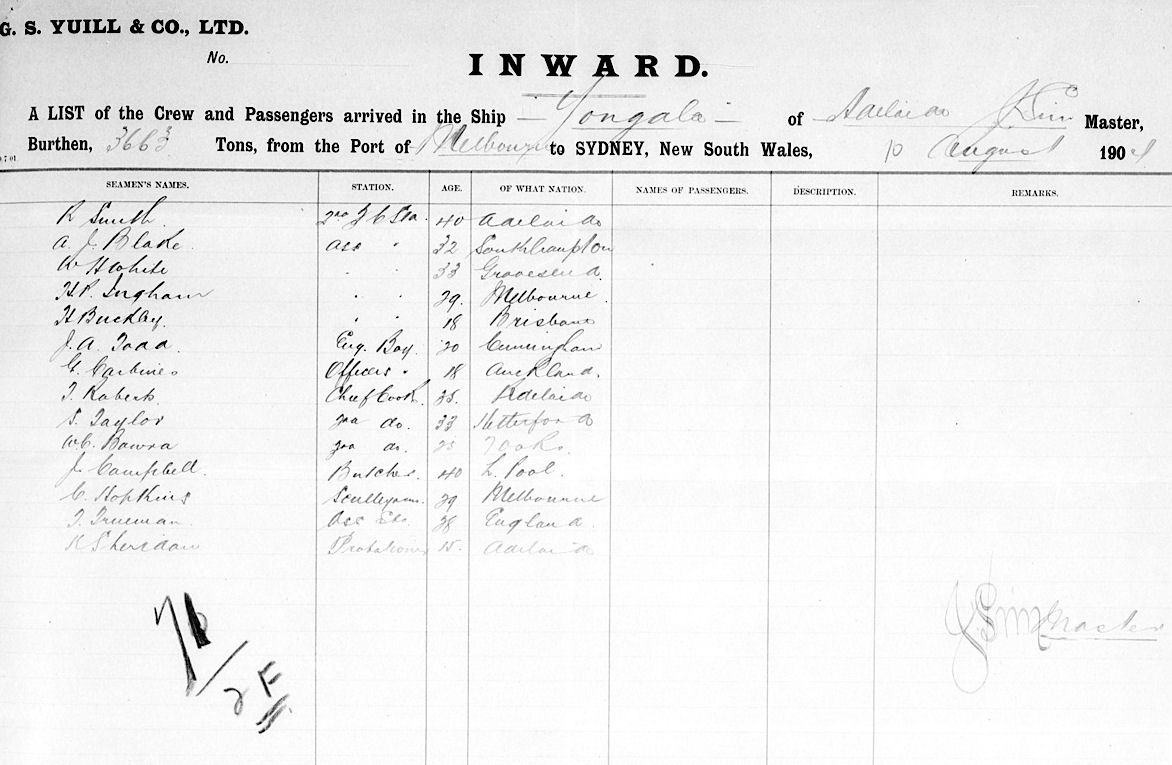 G. S. YUILL & CO., LTD.
No.
INWARD.
A LIST of the Crew and Passengers arrived in the Ship Yongala of Adelaide J Sim Master,
Burthen, 3663 Tons, from the Port of Melbourne to SYDNEY, New South Wales, 10 August 1904
SEAMEN'S NAMES. STATION. AGE. OF WHAT NATION. NAMES OF PASSENGERS. DESCRIPTION. REMARKS.
R Smith 40 Adelaide
A. J. Blake Ass " 32 Southhampton
W H White " " 33 Gravesend
H P. Ingham " " 29. Melbourne
H Buckley. " " 18 Brisbane
J. A. Todd. Eng. Boy. 20
G. Carbines Officers " 18 Auckland.
T. Roberts Chief Cook Adelaide
S. Taylor 2nd do. 33
do.
J. Campbell. Butcher. 40 L. Pool.
C. Hopkins 29 Melbourne
T. Trueman. 28 England.
K Sheridan Probationer 15. Adelaide
J. Sim Master
76/2F